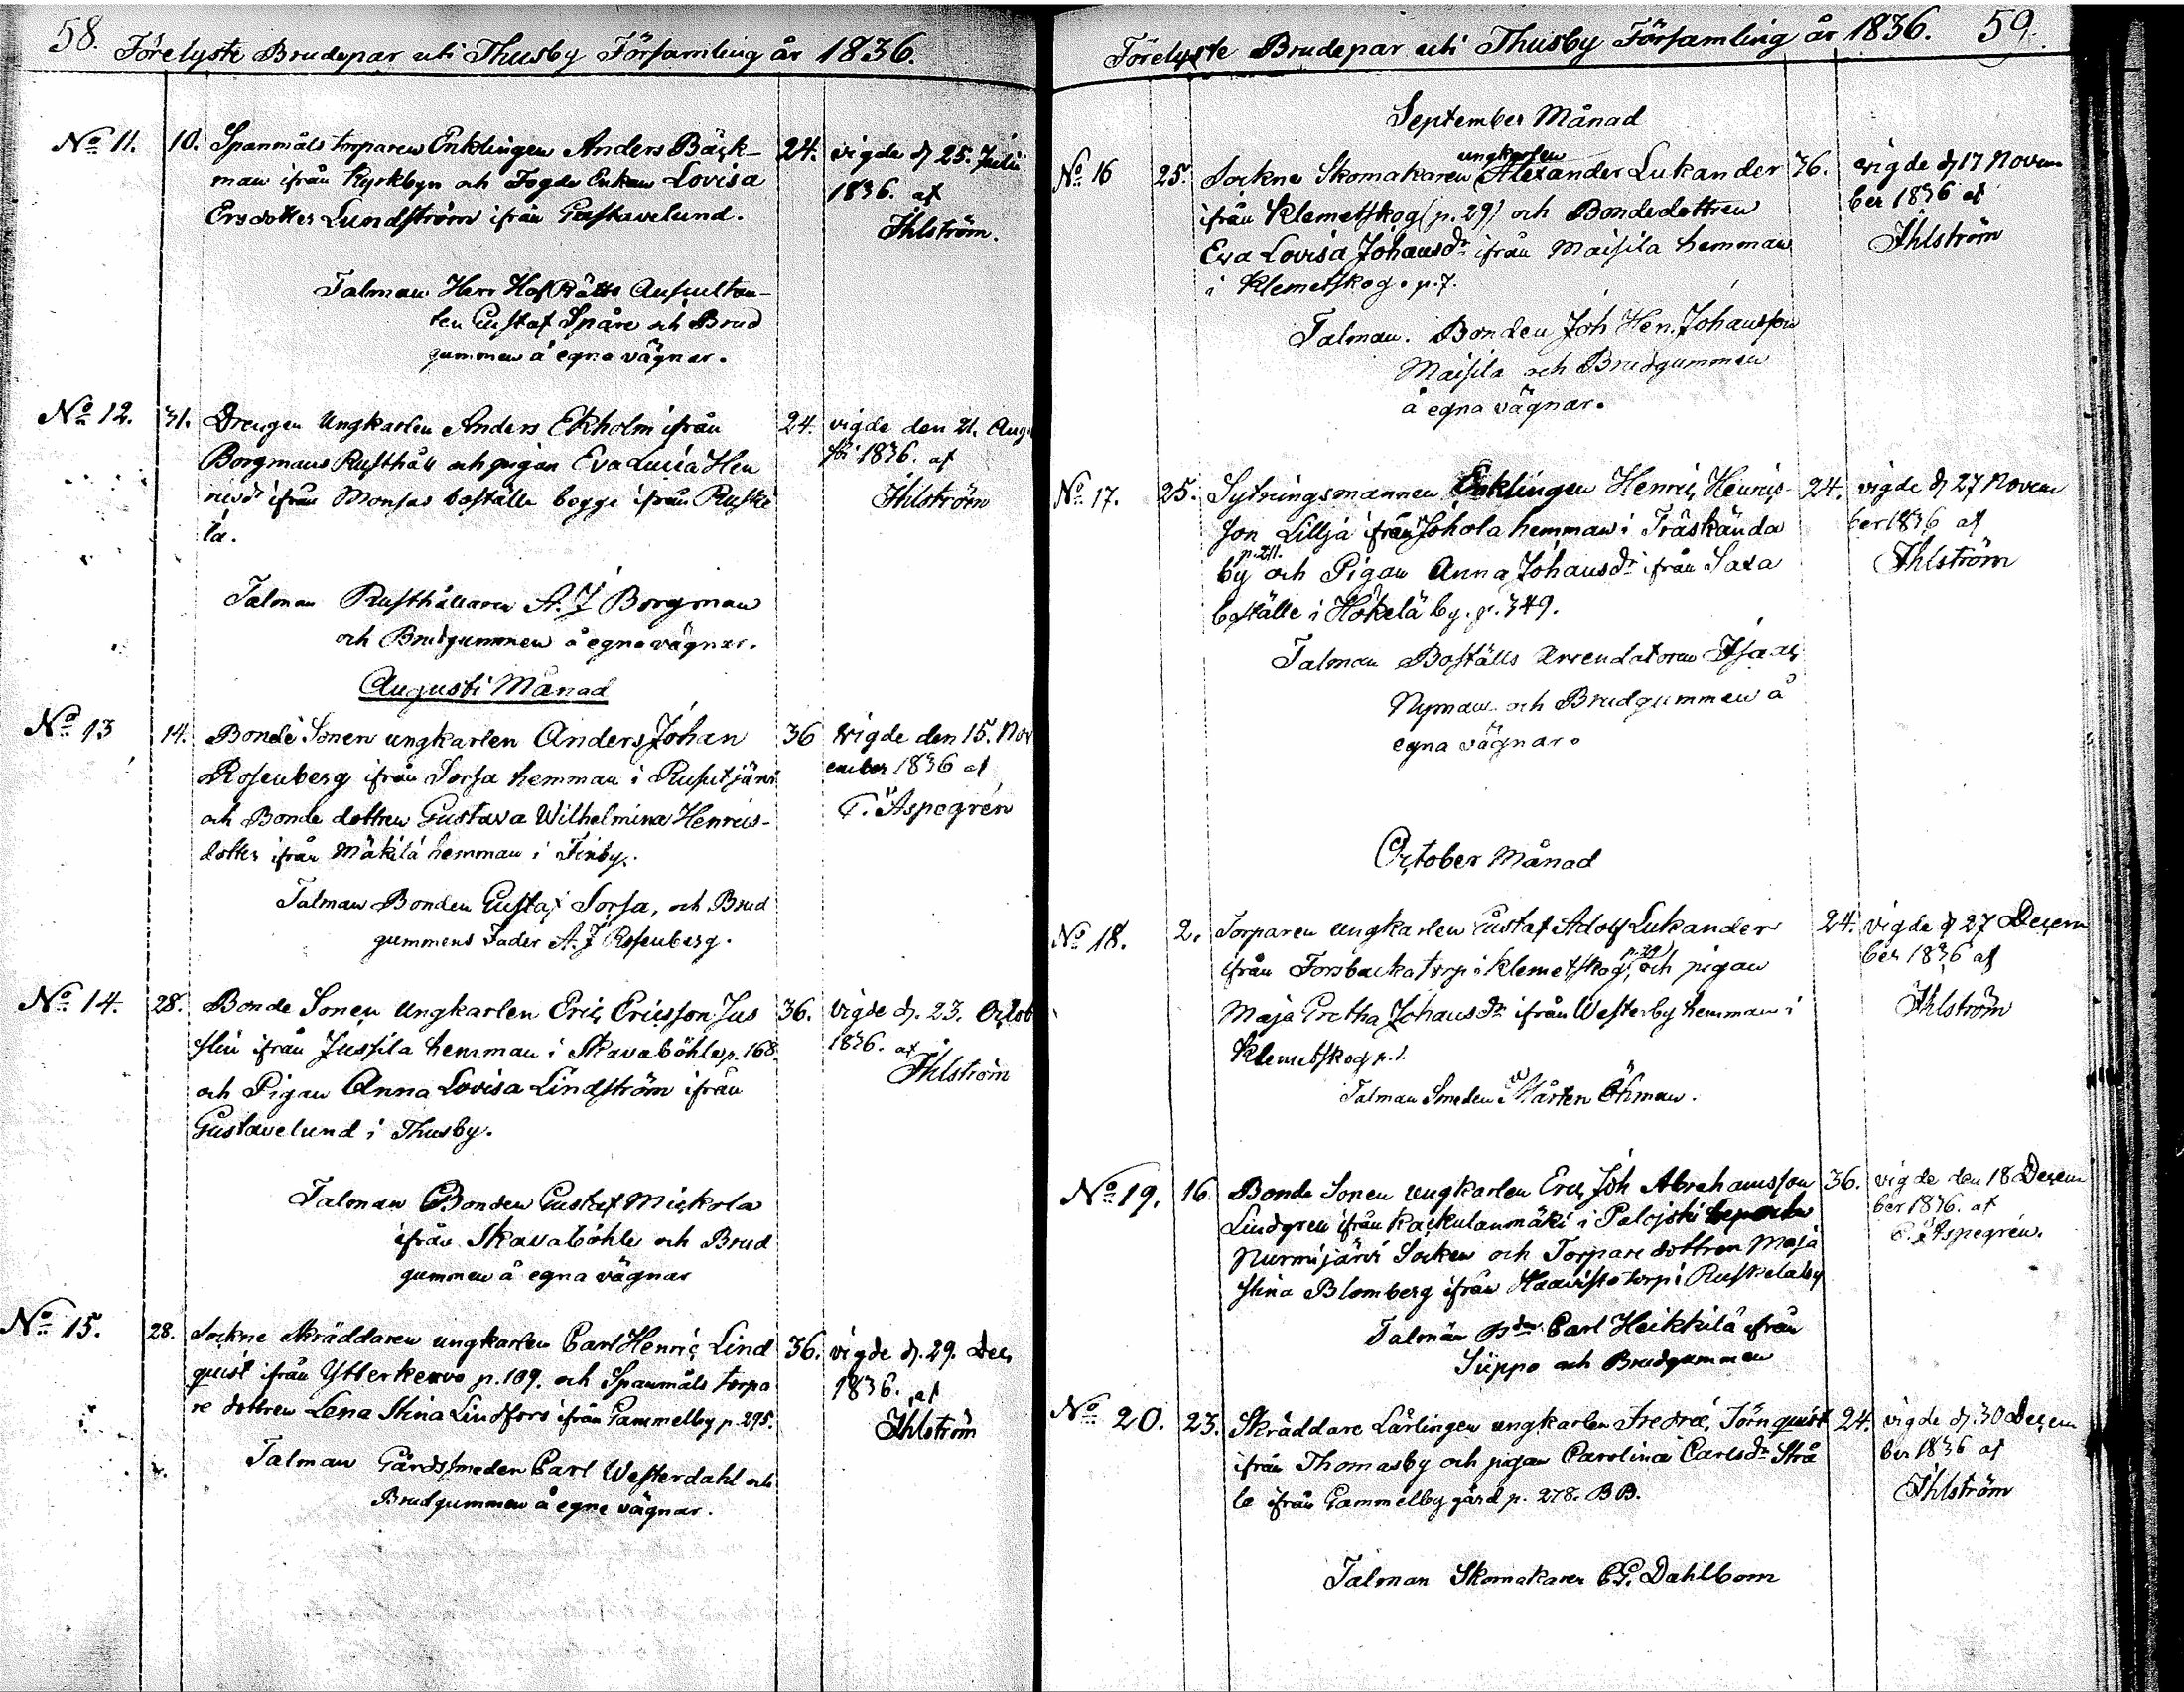 58.
Förelyste Brudepar uti Thusby Församling år 1836.
No 11. 10. Spanmåls torparen Enklingen Anders Bäck- 24. vigde d. 25. Julii
man ifrån Kyrkbyn och Fogde Enkan Lovisa 1836. af
Ersdotter Lundström ifrån Gustavelund. Ihlström.
Talman Herr HofRätts Auscultan-
ten Gustaf Spåre och Brud
gummen å egna vägnar.
No 12. 31. Drengen Ungkarlen Anders Ekholm ifrån 24. vigde den 21. Augu
Borgmans Rusthåll och pigan Eva Lucia Hen sti 1836. af
ricsdr ifrån Monsas boställe begge ifrån Ruske Ihlström
la.
Talman Rusthållaren A. J Borgman
och Brudgummen å egna vägnar.
Augusti Månad
No 13 14. Bonde Sonen ungkarlen Anders Johan 36 vigde den 15. Nov
Rosenberg ifrån Sorsa hemman i Rusutjärvi ember 1836 af
och Bonde dottren Gustava Wilhelmina Henrics- Aspegrén
dotter ifrån Mäkilä hemman i Finby.
Talman Bonden Gustaf Sorsa, och Brud
gummens Fader A. J Rosenberg.
No 14. 28. Bonde Sonen Ungkarlen Eric Ericsson Jus 36. vigde d. 23. Octob
slin ifrån Jussila hemman i Skavaböhle p. 168. 1836. af
och Pigan Anna Lovisa Lindström ifrån Ihlström
Gustavelund i Thusby.
Talman Bonden Gustaf Mickola
ifrån Skavaböhle och Brud
gummen å egna vägnar
No 15. 28. Sockne skräddaren ungkarlen Carl Henric Lind 36. vigde d. 29. Dec
quist ifrån Ytterkervo p. 109. och Spanmåls torpa 1836. af
re dottren Lena Stina Lindfors ifrån Gammelby p. 295. Ihlström
Talman Gårdssmeden Carl Westerdahl och
Brudgummen å egne vägnar.
Förelyste Brudepar uti Thusby Församling år 1836. 59.
September Månad
ungkarlen
No 16 25. Sockne Skomakaren Alexander Lukander 36. vigde d 17 Novem
ifrån Klemetskog (p. 29) och Bondedottren ber 1836 af
Eva Lovisa Johansdr ifrån Maisila hemman Ihlström
i Klemetskog. p. 7.
Talman. Bonden Joh Hen. Johansson
Maisila och Brudgummen
å egna vägnar.
No 17. 25. Sytningsmannen Enklingen Henric Henrics- 24. vigde d 27 Novem
son Lillja ifrån Johola hemman i Träskända ber 1836 af
p. 211.
by och Pigan Anna Johansdr ifrån Saxa Ihlström
boställe i Hökelä by. p. 349.
Talman Boställs Arrendatoren Isaac
Nyman och Brudgummen å
egna vägnar.
October Månad
No 18. 2. Torparen ungkarlen Gustaf Adolf Lukander 24. vigde d 27 Decem
ifrån Forsbacka torp i Klemetskog, och pigan ber 1836 af
Maja Gretha Johansdr ifrån Westerby hemman i Ihlström
Klemetskog p. 1.
Talman Smeden Mårten Öhman.
No 19. 16. Bonde Sonen ungkarlen Eric Joh Abrahamsson 36. vigde den 18 Decem
Lindgren ifrån Kackulanmäki i Palojoki ber 1836. af
Nurmijärvi Socken och Torpare dottren Maja Aspegrén.
Stina Blomberg ifrån Haavisto torp i Ruskelaby
Talmän Carl Heikkilä ifrån
Siippo och Brudgummen
No 20. 23. Skräddare Lärlingen ungkarlen Fredric Törnquist 24. vigde d. 30 Decem
ifrån Thomasby och pigan Carolina Carlsdr Strå ber 1836 af
le ifrån Gammelby gård p. 278. BB. Ihlström
Talman Skomakaren C G. Dahlbom